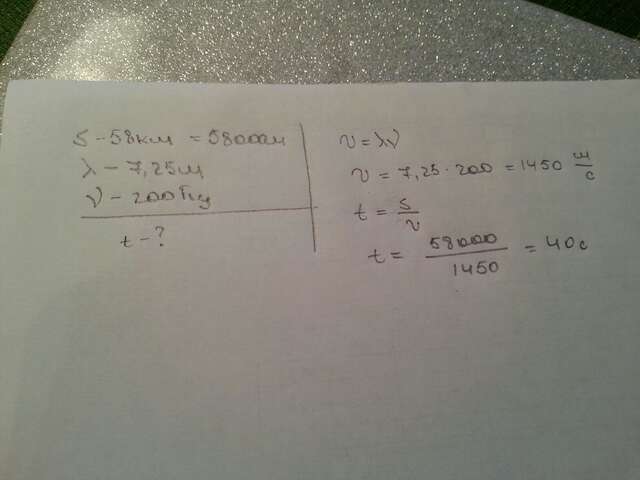 S - 58км = 58000м
λ - 7,25м
ν - 200Гц
t - ?
v = λν
v = 7,25 · 200 = 1450 м/с
t = S/v
t = 58000/1450 = 40с